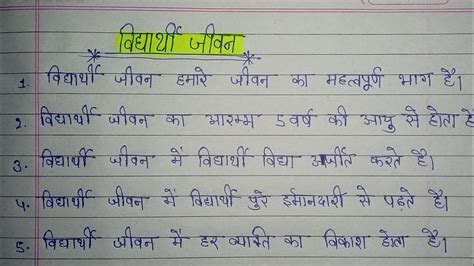 विद्यार्थी जीवन
1. विद्यार्थी जीवन हमारे जीवन का महत्वपूर्ण भाग है।
2. विद्यार्थी जीवन का आरम्भ 5 वर्ष की आयु से होता है
3. विद्यार्थी जीवन में विद्यार्थी विद्या अर्जीत करते है।
4. विद्यार्थी जीवन में विद्यार्थी पुरे ईमानदारी से पढ़ते है।
5. विद्यार्थी जीवन में हर व्यक्ति का विकाश होता है।